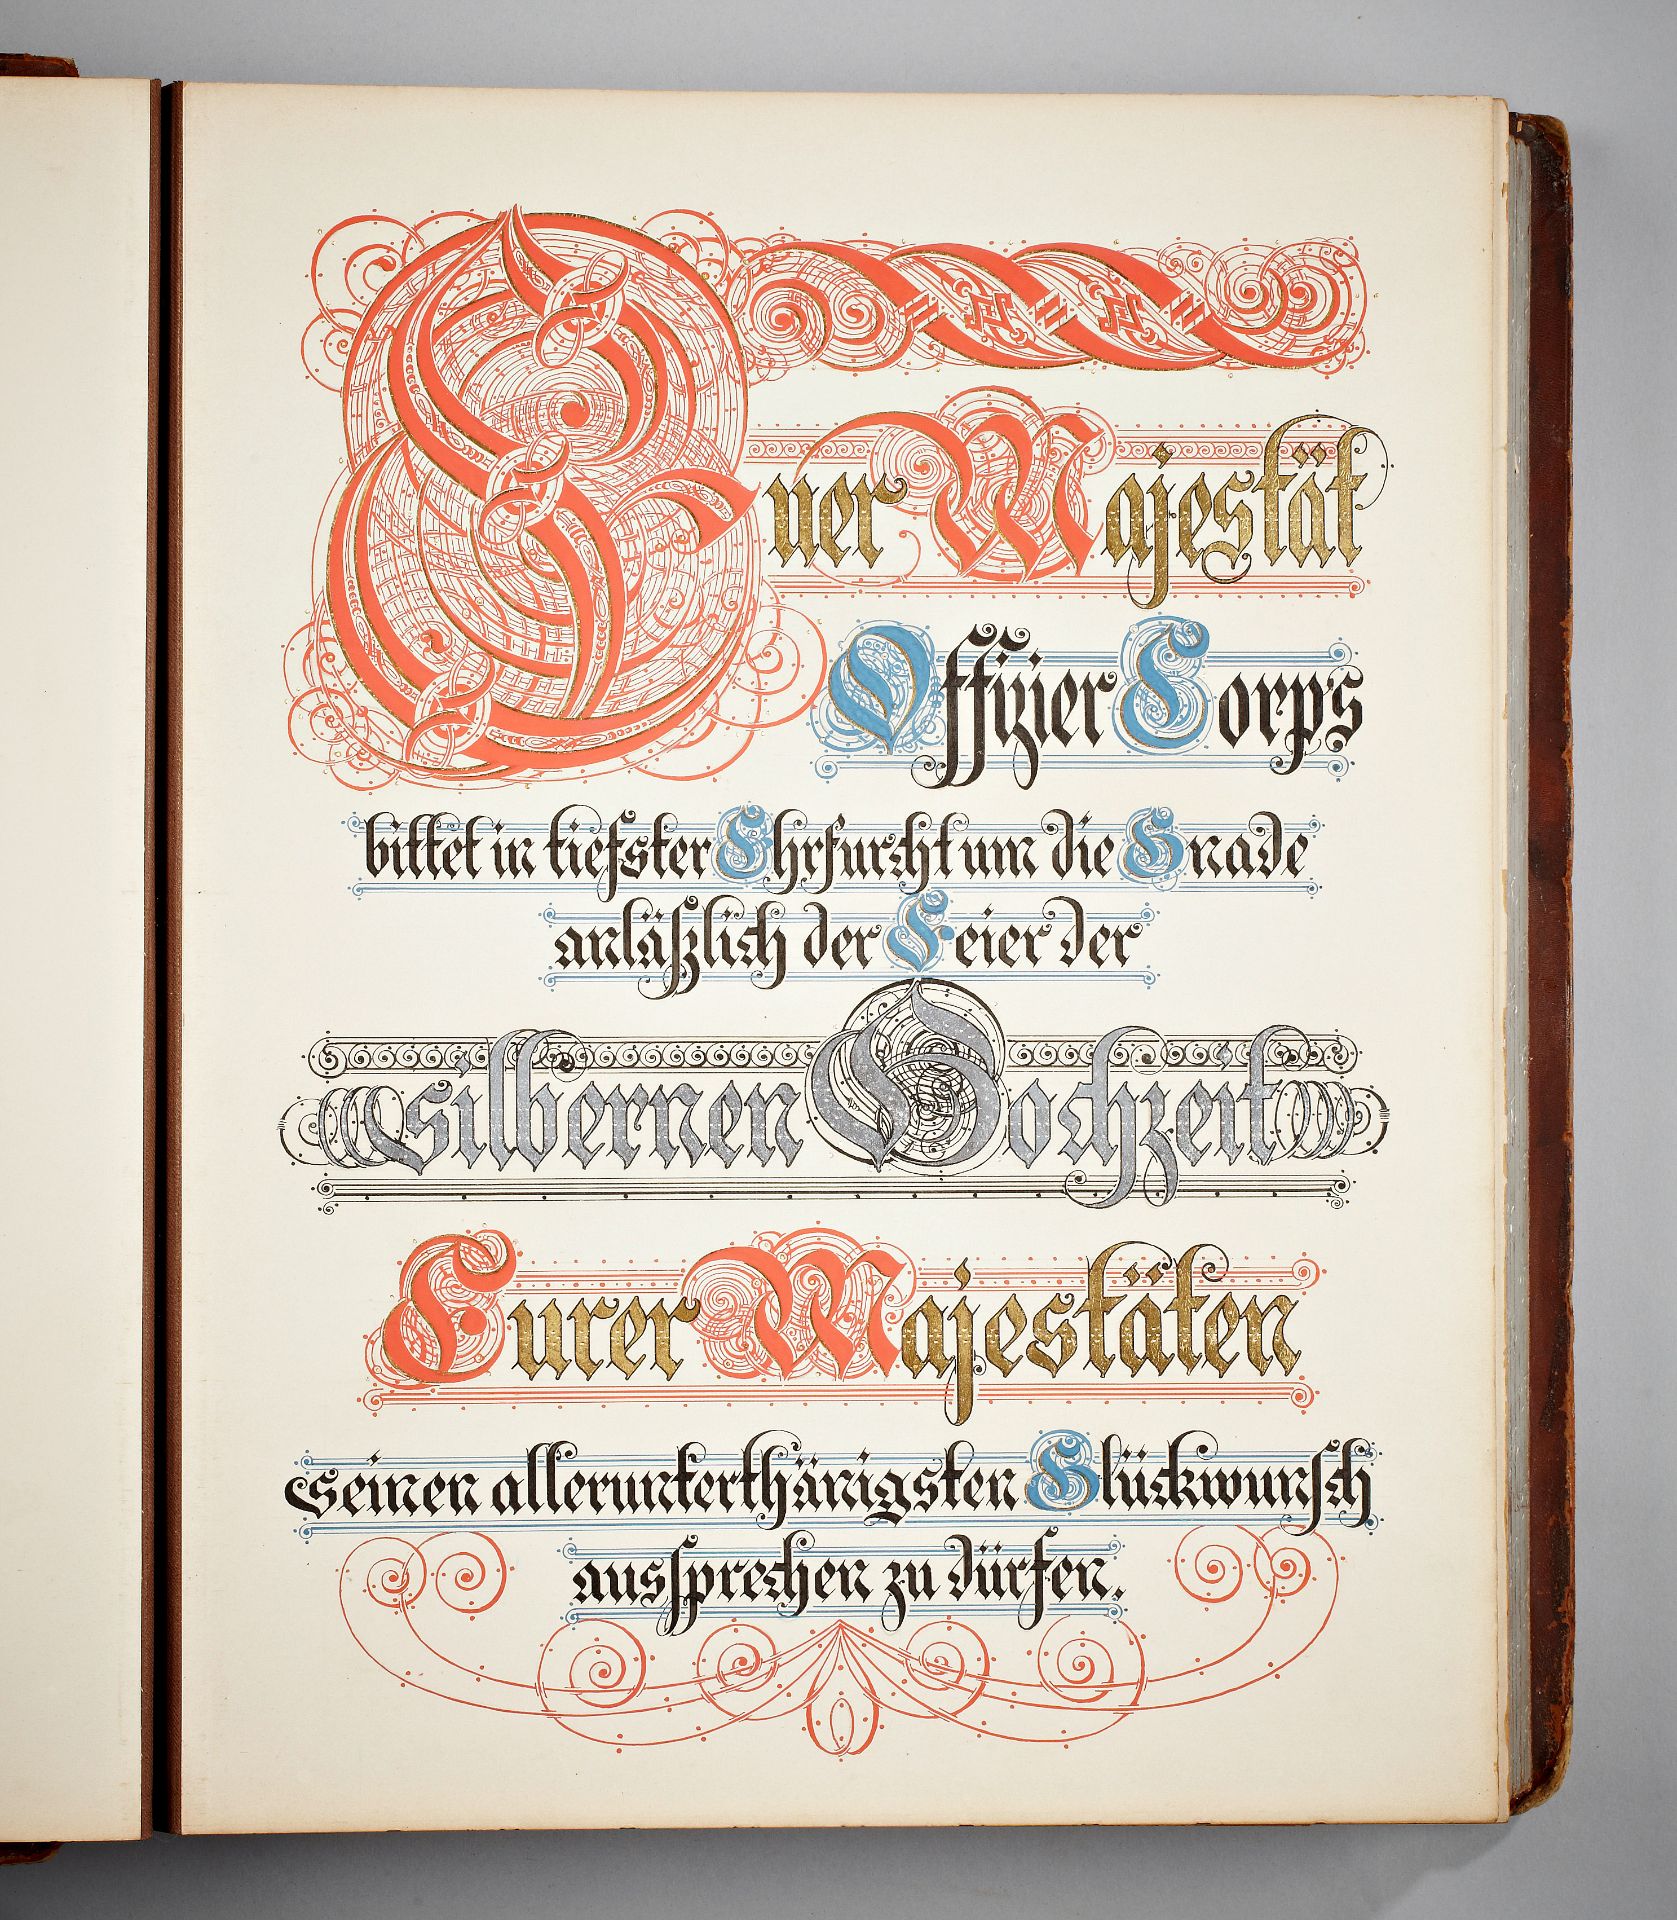 Euer Majestät
Offizier Corps
bittet in tiefster Ehrfurcht um die Gnade
anläßlich der Feier der
silbernen Hochzeit
Eurer Majestäten
seinen allerunterthänigsten Glückwunsch
aussprechen zu dürfen.